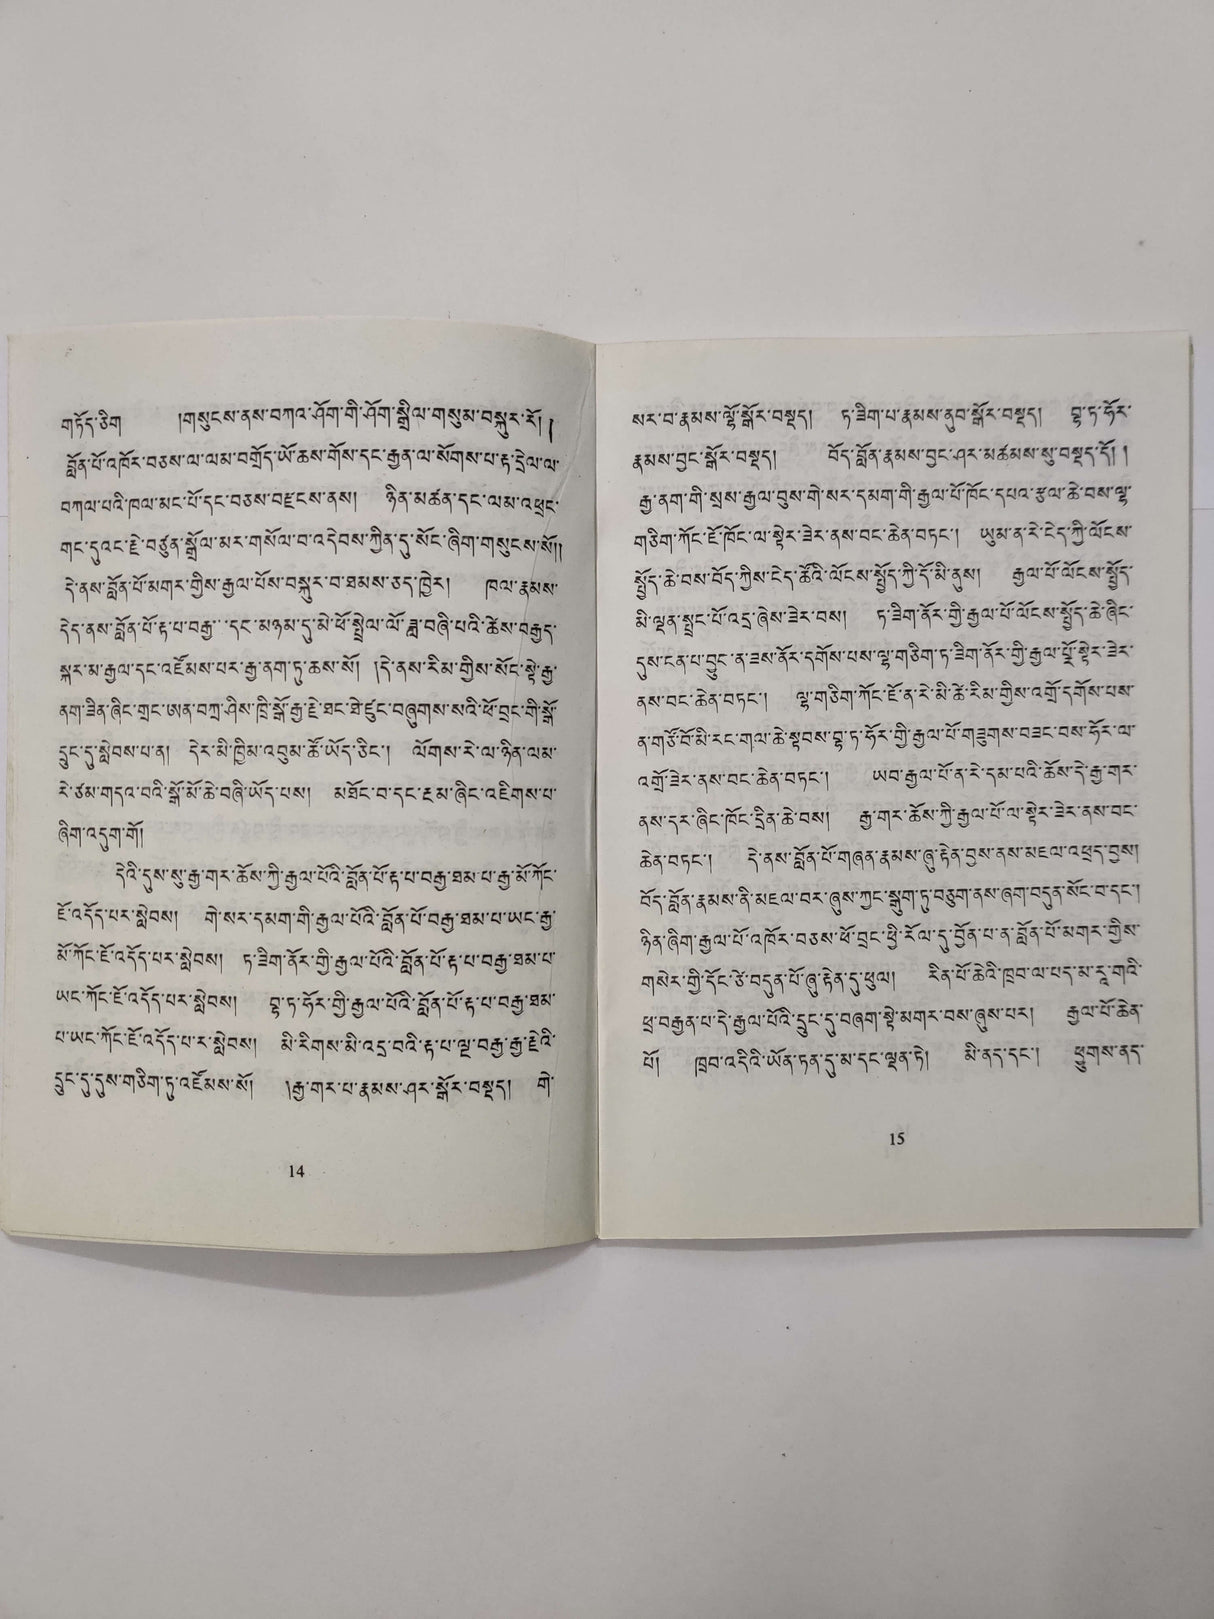 གཏོད་ཅིག །གསུངས་ནས་བཀའ་ཤོག་གི་ཤོག་སྒྲིལ་གསུམ་བསྐུར་རོ། །
བློན་པོ་འཁོར་བཅས་ལ་ལམ་བགྲོད་ཡོ་ཆས་གོས་དང་རྒྱན་ལ་སོགས་པ་རྟ་དྲེལ་ལ་
བཀལ་པའི་ཁལ་མང་པོ་དང་བཅས་བརྫངས་ནས། ཉིན་མཚན་དང་ལམ་འཕྲང་
གང་དུའང་རྗེ་བཙུན་སྒྲོལ་མར་གསོལ་བ་འདེབས་ཀྱིན་དུ་སོང་ཞིག་གསུངས་སོ།།
དེ་ནས་བློན་པོ་མགར་གྱིས་རྒྱལ་པོས་བསྐུར་བ་ཐམས་ཅད་ཁྱེར། ཁལ་རྣམས་
དེད་ནས་བློན་པོ་རྟ་པ་བརྒྱ་ དང་མཉམ་དུ་མེ་ཕོ་སྤྲེལ་ལོ་ཟླ་བཞི་པའི་ཚེས་བརྒྱད་
སྐར་མ་རྒྱལ་དང་འཛོམས་པར་རྒྱ་ནག་ཏུ་ཆས་སོ། །དེ་ནས་རིམ་གྱིས་སོང་སྟེ་རྒྱ་
ནག་ཟིན་ཞིང་གྲང་ཨན་བཀྲ་ཤིས་ཁྲི་སྒོ་རྒྱ་རྗེ་ཐང་ཐེ་ཛུང་བཞུགས་སའི་ཕོ་བྲང་གི་སྒོ་
དྲུང་དུ་སླེབས་པ་ན། དེར་མི་ཁྱིམ་འབུམ་ཚོ་ཡོད་ཅིང་། ལོགས་རེ་ལ་ཉིན་ལམ་
རེ་ཙམ་གདའ་བའི་སྒོ་མོ་ཆེ་བཞི་ཡོད་པས། མཐོང་བ་དང་རྔམ་ཞིང་འཇིགས་པ་
ཞིག་འདུག་གོ།
དེའི་དུས་སུ་རྒྱ་གར་ཆོས་ཀྱི་རྒྱལ་པོའི་བློན་པོ་རྟ་པ་བརྒྱ་ཐམ་པ་རྒྱ་མོ་ཀོང་
ཇོ་འདོད་པར་སླེབས། གེ་སར་དམག་གི་རྒྱལ་པོའི་བློན་པོ་བརྒྱ་ཐམ་པ་ཡང་རྒྱ་
མོ་ཀོང་ཇོ་འདོད་པར་སླེབས། ཏ་ཟིག་ནོར་གྱི་རྒྱལ་པོའི་བློན་པོ་རྟ་པ་བརྒྱ་ཐམ་པ་
ཡང་ཀོང་ཇོ་འདོད་པར་སླེབས། བྷ་ཏ་ཧོར་གྱི་རྒྱལ་པོའི་བློན་པོ་རྟ་པ་བརྒྱ་ཐམ་
པ་ཡང་ཀོང་ཇོ་འདོད་པ་ར་སླེབས། མི་རིགས་མི་འདྲ་བའི་རྟ་པ་ལྔ་བརྒྱ་རྒྱ་རྗེའི་
དྲུང་དུ་དུས་གཅིག་ཏུ་འཛོམས་སོ། །རྒྱ་གར་པ་རྣམས་ཤར་སྒོར་བསྡད། གེ་
14
སར་བ་རྣམས་ལྷོ་སྒོར་བསྡད། ཏ་ཟིག་པ་རྣམས་ནུབ་སྒོར་བསྡད། བྷ་ཏ་ཧོར་
རྣམས་བྱང་སྒོར་བསྡད། བོད་བློན་རྣམས་བྱང་ཤར་མཚམས་སུ་བསྡད་དོ། །
རྒྱ་ནག་གི་སྲས་རྒྱལ་བུས་གེ་སར་དམག་གི་རྒྱལ་པོ་ཁོང་དཔའ་རྩལ་ཆེ་བས་ལྷ་
གཅིག་ཀོང་ཇོ་ཁོང་ལ་སྟེར་ཟེར་ནས་བང་ཆེན་བཏང་། ཡུམ་ན་རེ་ངེད་ཀྱི་ལོངས་
སྤྱོད་ཆེ་བས་བོད་ཀྱིས་ངེད་ཚོའི་ལོངས་སྤྱོད་ཀྱི་དོ་མི་ནུས། རྒྱལ་པོ་ལོངས་སྤྱོད་
མི་ལྡན་སྤྲང་པོ་འདྲ་ཞེས་ཟེར་བས། ཏ་ཟིག་ནོར་གྱི་རྒྱལ་པོ་ལོངས་སྤྱོད་ཆེ་ཞིང་
དུས་ངན་པ་བྱུང་ན་ཟས་ནོར་དགོས་པས་ལྷ་གཅིག་ཏ་ཟིག་ནོར་གྱི་རྒྱལ་པོྲ་སྟེར་ཟེར་
ནས་བང་ཆེན་བཏང་། ལྷ་གཅིག་ཀོང་ཇོ་ན་རེ་མི་ཚེ་རིམ་གྱིས་འགྲོ་དགོས་པས་
ན་གཙོ་བོ་མི་རང་གལ་ཆེ་སྟབས་བྷ་ཏ་ཧོར་གྱི་རྒྱལ་པོ་གཟུགས་བཟང་བས་ཧོར་ལ་
འགྲོ་ཟེར་ནས་བང་ཆེན་བཏང་། ཡབ་རྒྱལ་པོ་ན་རེ་དམ་པའི་ཆོས་དེ་རྒྱ་གར་
ནས་དར་ཞིང་ཁོང་དྲིན་ཆེ་བས། རྒྱ་གར་ཆོས་ཀྱི་རྒྱལ་པོ་ལ་སྟེར་ཟེར་ནས་བང་
ཆེན་བཏང་། དེ་ནས་བློན་པོ་གཞན་རྣམས་ཞུ་རྟེན་བྱས་ནས་མཇལ་འཕྲད་བྱས།
བོད་བློན་རྣམས་ནི་མཇལ་བར་ཞུས་ཀྱང་སྒུག་ཏུ་བཅུག་ནས་ཞག་བདུན་སོང་བ་དང་།
ཉིན་ཞིག་རྒྱལ་པོ་འཁོར་བཅས་ཕོ་བྲང་ཕྱི་རོལ་དུ་བྱོན་པ་ན་བློན་པོ་མགར་གྱིས་
གསེར་གྱི་དོང་ཙེ་བདུན་པོ་ཞུ་རྟེན་དུ་ཕུལ། རིན་པོ་ཆེའི་ཁྲབ་ལ་པད་མ་རཱ་གའི་
ཕྲ་བརྒྱན་པ་དེ་རྒྱལ་པོའི་དྲུང་དུ་བཞག་སྟེ་མགར་བས་ཞུས་པར། རྒྱལ་པོ་ཆེན་
པོ། ཁྲབ་འདིའི་ཡོན་ཏན་དུ་མ་དང་ལྡན་ཏེ། མི་ནད་དང་། ཕྱུགས་ནད་
15